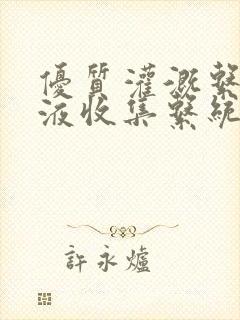 優質灌溉繫
液收集繫統
許永爐